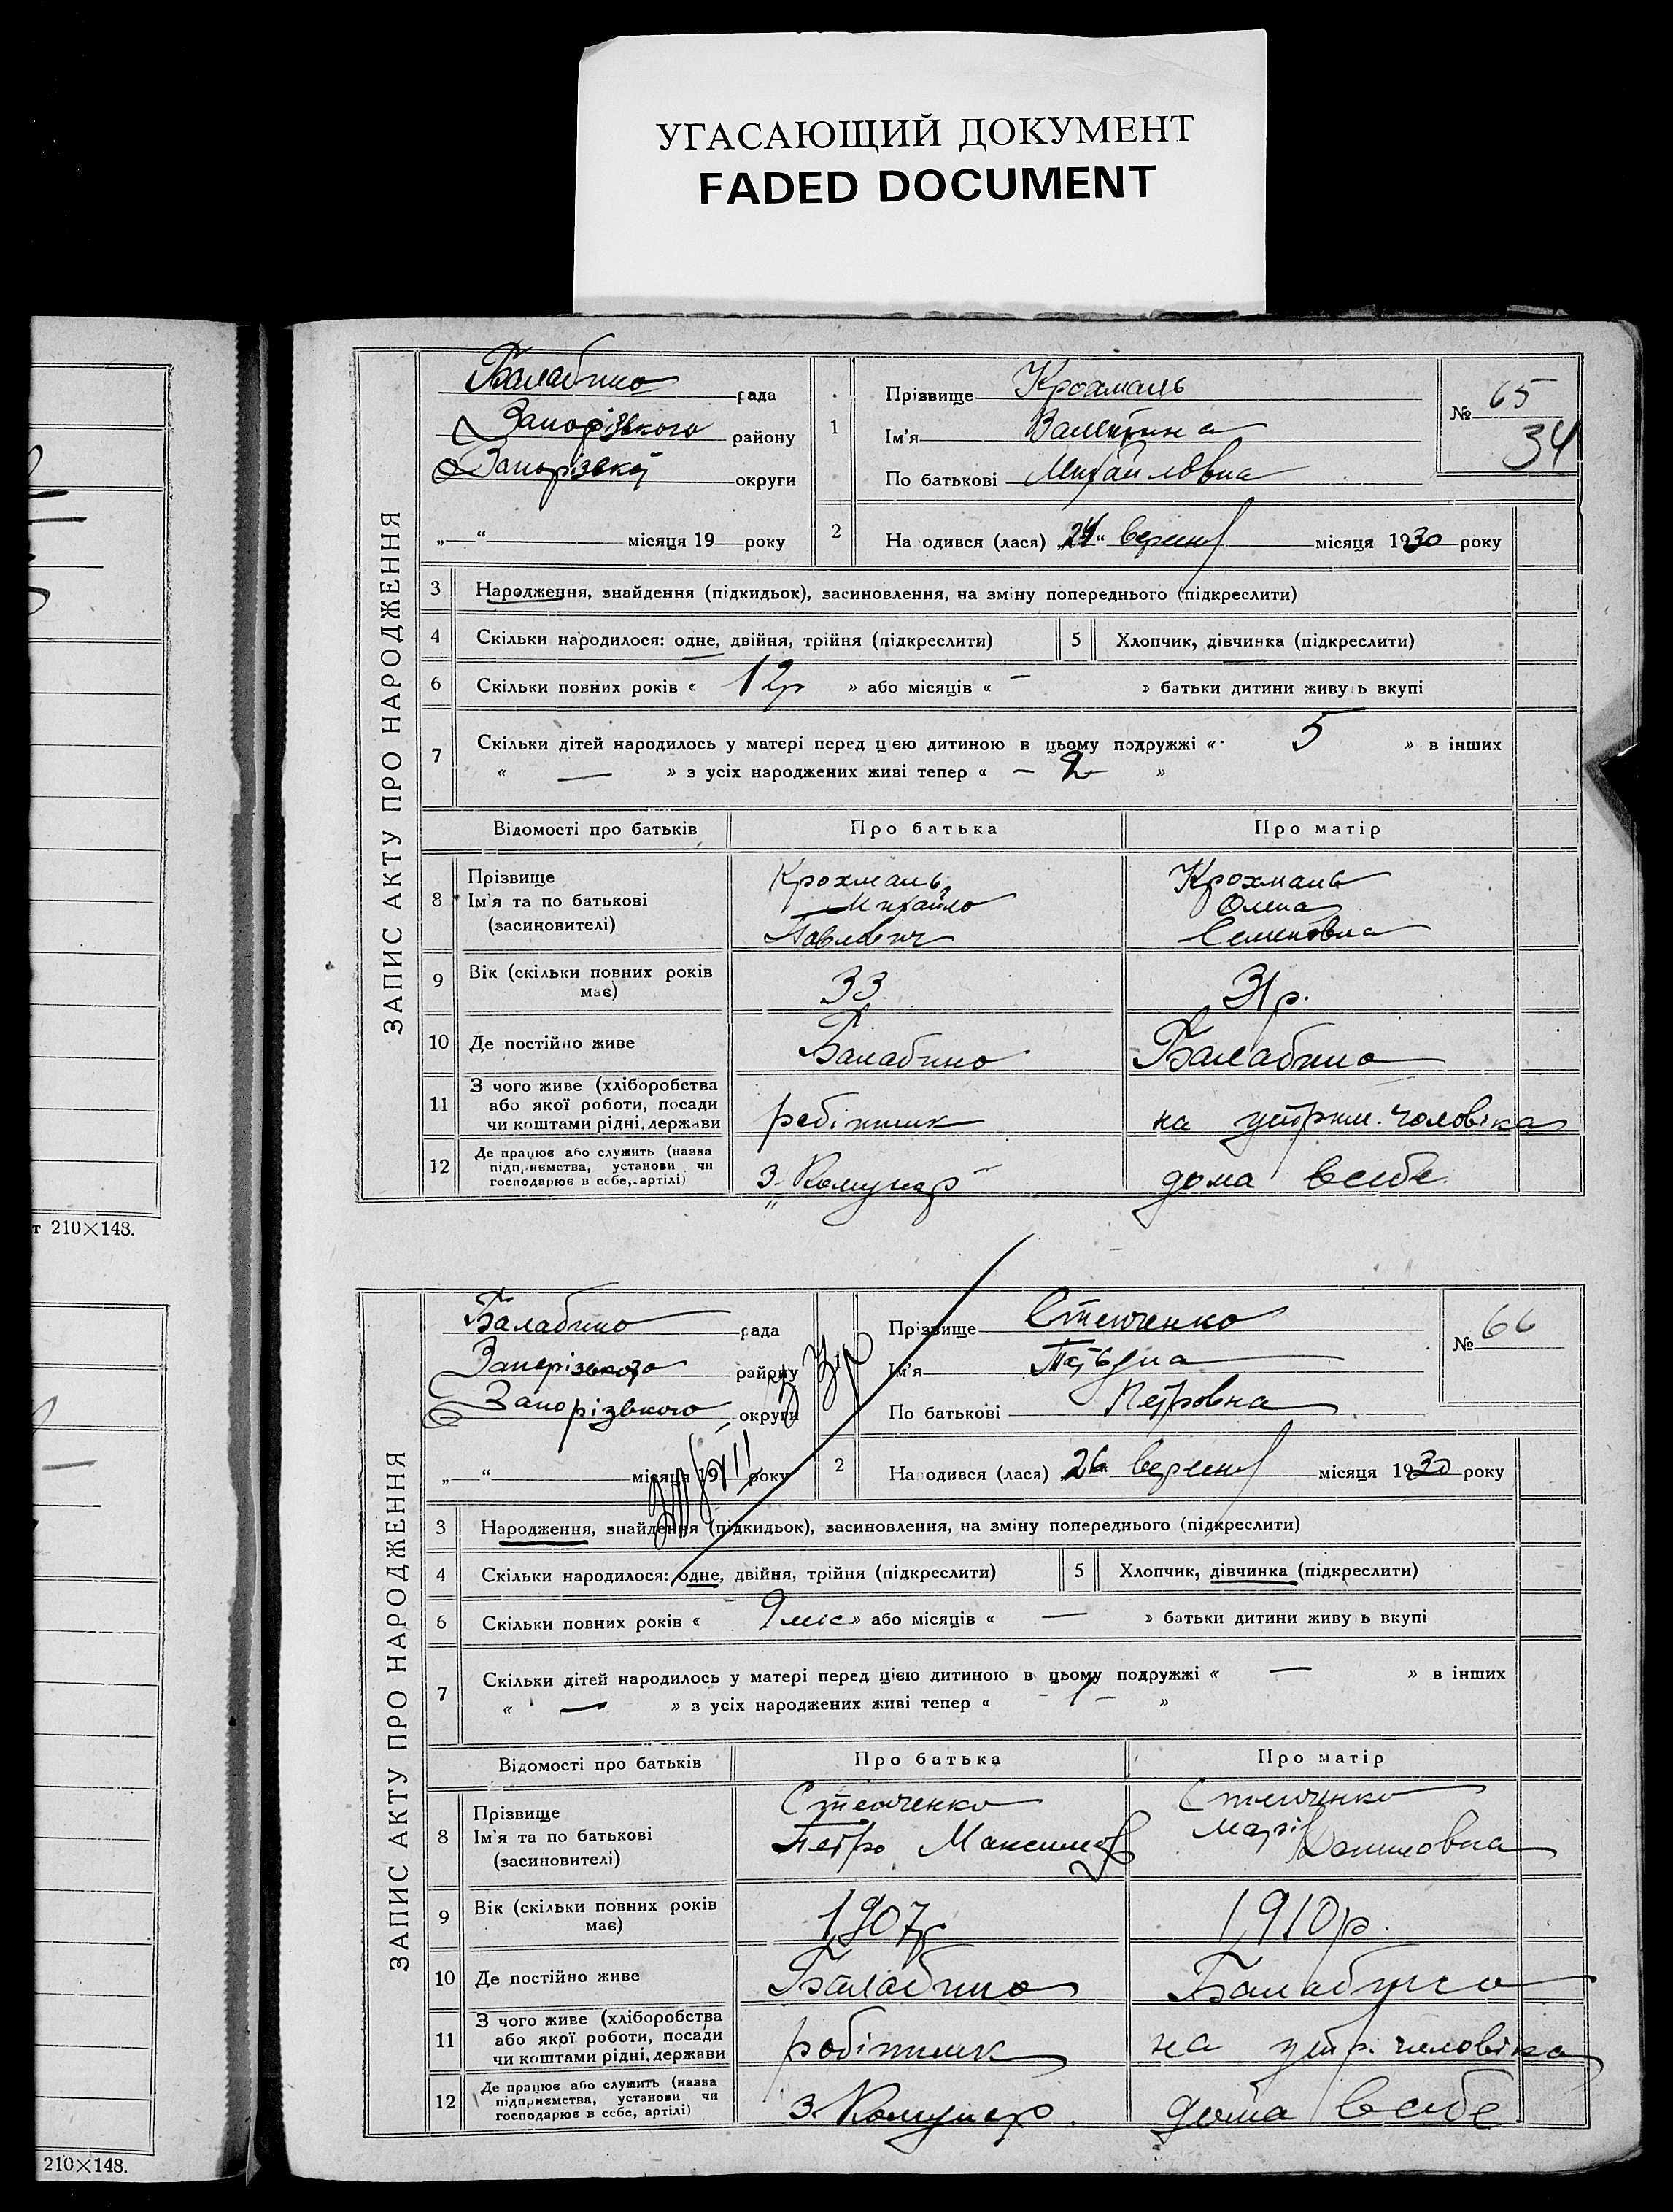 УГАСАЮЩИЙ ДОКУМЕНТ
FADED DOCUMENT
т 210×148.
210×148.
ЗАПИС АКТУ ПРО НАРОДЖЕННЯ
Балабино рада
Запорізького району
Запорізької округи
„—“ місяця 19 — року
1
Прізвище Крохмаль
Ім'я Валентина
По батькові Михайловна
№ 65
34
2 На одився (лася) 24 “ вересн місяця 1930 року
3 Народження, знайдення (підкидьок), засиновлення, на зміну попереднього (підкреслити)
4 Скільки народилося: одне, двійня, трійня (підкреслити) 5 Хлопчик, дівчинка (підкреслити)
6 Скільки повних років « 12р » або місяців « — » батьки дитини живу ь вкупі
7 Скільки дітей народилось у матері перед цією дитиною в цьому подружжі « 5 » в інших
« — » з усіх народжених живі тепер « — »
Відомості про батьків Про батька Про матір
8 Прізвище Крохмаль Крохмаль
Ім'я та по батькові Михайло Олена
(засиновителі) Павлович Семеновна
9 Вік (скільки повних років має) 33 31р.
10 Де постійно живе Балабино Балабино
11 З чого живе (хліборобства
або якої роботи, посади
чи коштами рідні, держави робітник на утрим. чоловіка
12 Де працює або служить (назва
підприємства, установи чи
господарює в себе, артілі) З. Комунар дома в себе
ЗАПИС АКТУ ПРО НАРОДЖЕННЯ
Балабино рада
Запорізького району
Запорізького округи
„—“ місяця 19 року
Прізвище Стенченко
Ім'я
По батькові Петровна
№ 66
2 На одився (лася) 26 вересн місяця 1930 року
3 Народження, знайдення (підкидьок), засиновлення, на зміну попереднього (підкреслити)
4 Скільки народилося: одне, двійня, трійня (підкреслити) 5 Хлопчик, дівчинка (підкреслити)
6 Скільки повних років « 9 міс » або місяців « — » батьки дитини живу ь вкупі
7 Скільки дітей народилось у матері перед цією дитиною в цьому подружжі « — » в інших
« — » з усіх народжених живі тепер « - 1 - »
Відомості про батьків Про батька Про матір
8 Прізвище Стенченко Стенченко
Ім'я та по батькові Петро Максимов Марія
(засиновителі)
9 Вік (скільки повних років має) 1907р 1910р.
10 Де постійно живе Балабино Балабино
11 З чого живе (хліборобства
або якої роботи, посади
чи коштами рідні, держави робітник на утр. чоловіка
12 Де працює або служить (назва
підприємства, установи чи
господарює в себе, артілі) З. Комунар. дома в себе